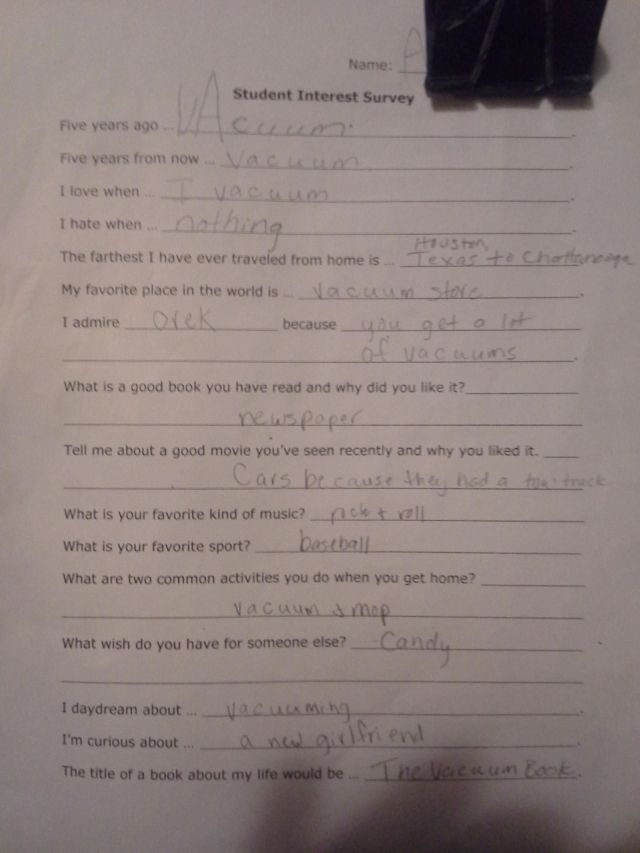 Name:
Student Interest Survey
Five years ago ... VAcuum.
Five years from now ... Vacuum.
I love when ... I vacuum.
I hate when ... nothing.
Houston,
The farthest I have ever traveled from home is ... Texas to Chattanooga
My favorite place in the world is ... Vacuum store.
I admire Orek because you get a lot
of vacuums.
What is a good book you have read and why did you like it?
newspaper
Tell me about a good movie you've seen recently and why you liked it.
Cars because they had a tow truck
What is your favorite kind of music? rick & roll
What is your favorite sport? baseball
What are two common activities you do when you get home?
Vacuum & mop
What wish do you have for someone else? Candy
I daydream about ... vacuuming.
I'm curious about ... a new girlfriend.
The title of a book about my life would be ... The Vacuum Book.